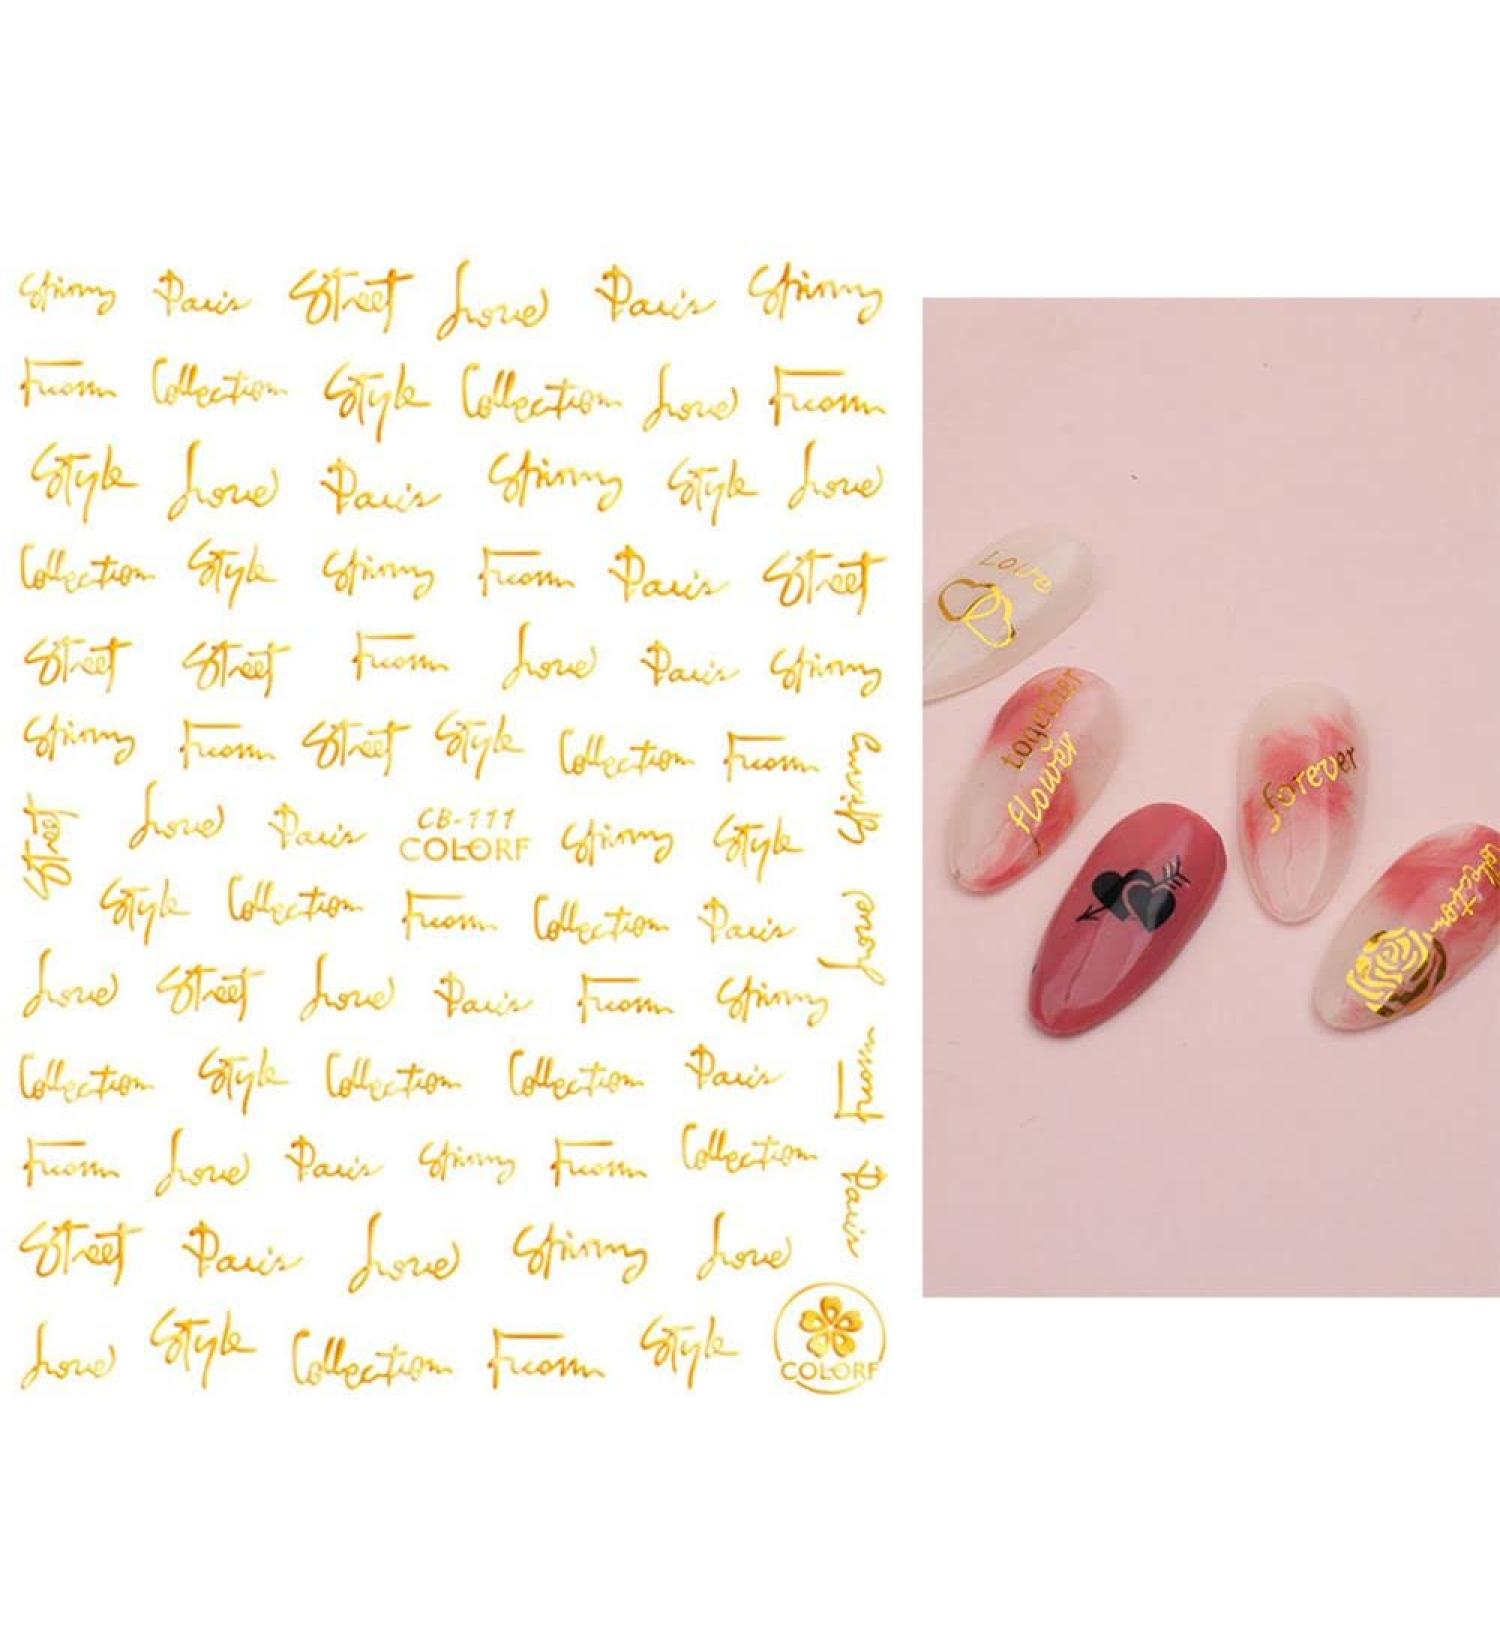 Spinny Paris Street Love Paris Spinny
From Collection Style Collection Love From
Style Love Paris Spinny Style Love
Collection Style Spinny From Paris Street
Street Street From Love Paris Spinny
Spinny From Street Style Collection From
Spinny
Street
Love Paris
CB-111
COLORF
Spinny Style
Style Collection From Collection Paris
Love
Love Street Love Paris From Spinny
Collection Style Collection Collection Paris
From
From Love Paris Spinny From Collection
Paris
Street Paris Love Spinny Love
Love Style Collection From Style
COLORF
Love
together
flower
forever
collection